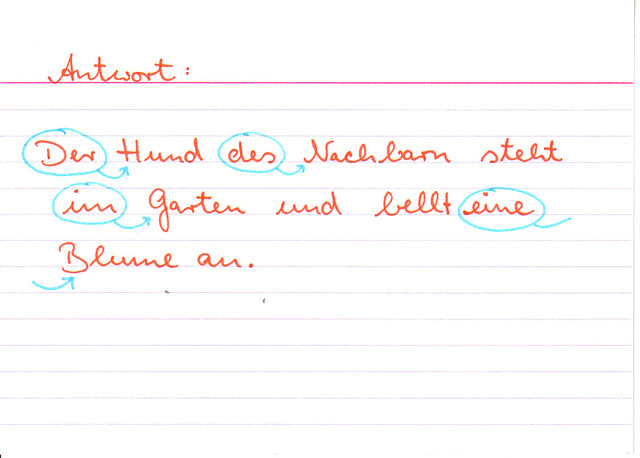 Antwort:
Der Hund des Nachbarn steht
im Garten und bellt eine
Blume an.